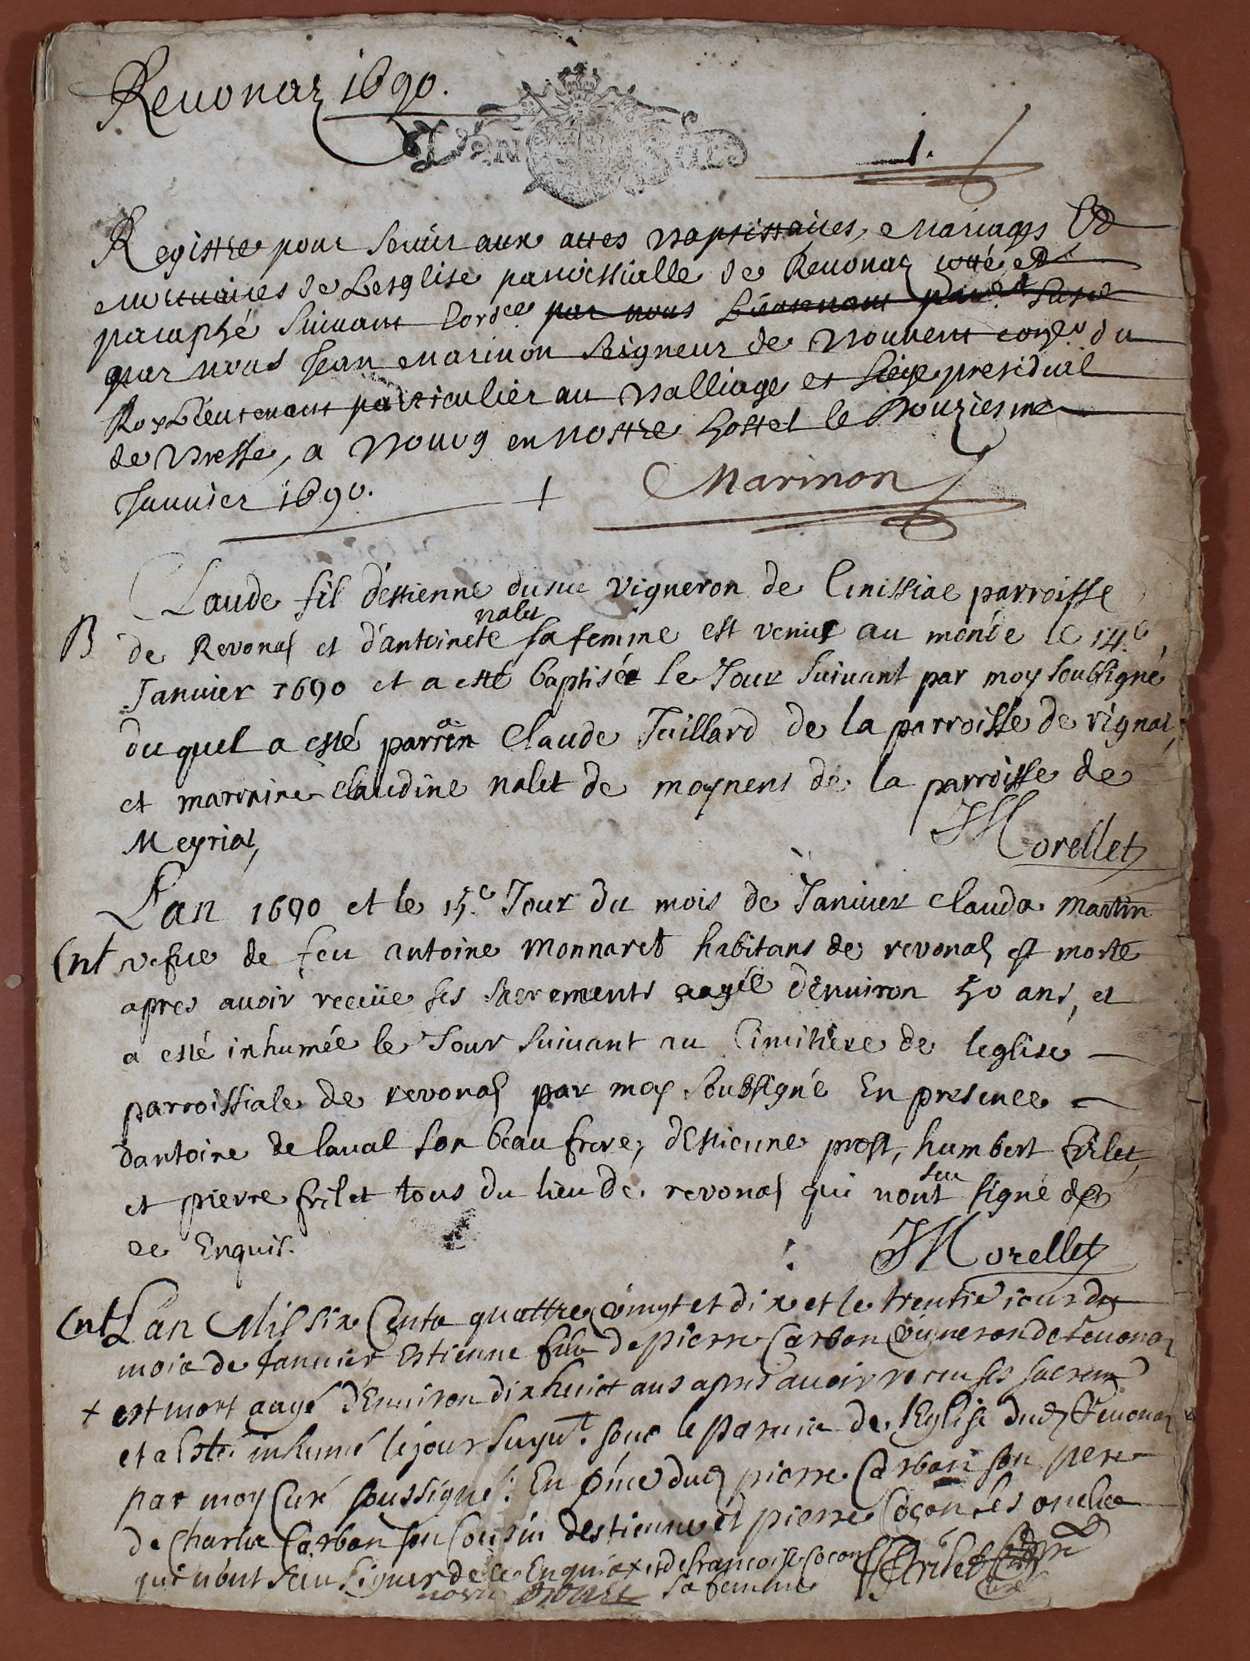 Revonaz 1690.
1.
Registre pour servir aux actes Baptistaires, Mariages Et
mortuaires de Lesglise parroissialle de Revonaz cotté et
paraphé Suivant Lord.ce par nous Lieutenant
par nous Jean Marinon Seigneur de Bouvent cons.er du
Roy Lieutenant particulier au Balliage et Siege presidial
de Bresse, a Bourg en nostre hostel le Douziesme
Janvier 1690.
Marinon
Claude fil d'estienne vigneron de Cinissiac parroisse
B de Revonas et d'antoinete nalet sa femme est venue au monde le 14.e
Janvier 1690 et a esté baptisée le Jour suivant par moy soubsigné
duquel a esté parrain Claude Juillard de la parroisse de rignat,
et marraine claudine nalet de moynens de la parroisse de
Meyriat,
JMorellet
L'an 1690 et le 15.e Jour du mois de Janvier clauda martin
Ent vefve de feu antoine Monnaret habitans de revonas est morte
apres avoir receüe ses sacrements aagée d'environ 50 ans, et
a esté inhumée le Jour suivant au Cimitiere de leglise
parroissiale de revonas par moy soubsigné En presence
dantoine de laval son beau frere, d'estienne prost, humbert frilet,
et pierre frilet tous du lieu de revonas qui nont sceu signé de
ce Enquis.
JMorellet
Ent L'an Mil six Cents quattre vingt et dix et le trentie jour du
mois de Janvier Estienne fils de pierre Carbon vigneron de revonas
+ est mort aagé d'Environ dix huict ans apres avoir receu ses sacremts
et a Esté inhumé le jour suyvt. sous le parvis de l'Eglise dud Revonas
par moy Curé soussigné: En pnce dud pierre Carbon son pere
de Charle Carbon son Cousin destienne et pierre Coçon ses oncles
qui n'ont sceu signer de ce Enquis + et de francoise Coçon
sa femme